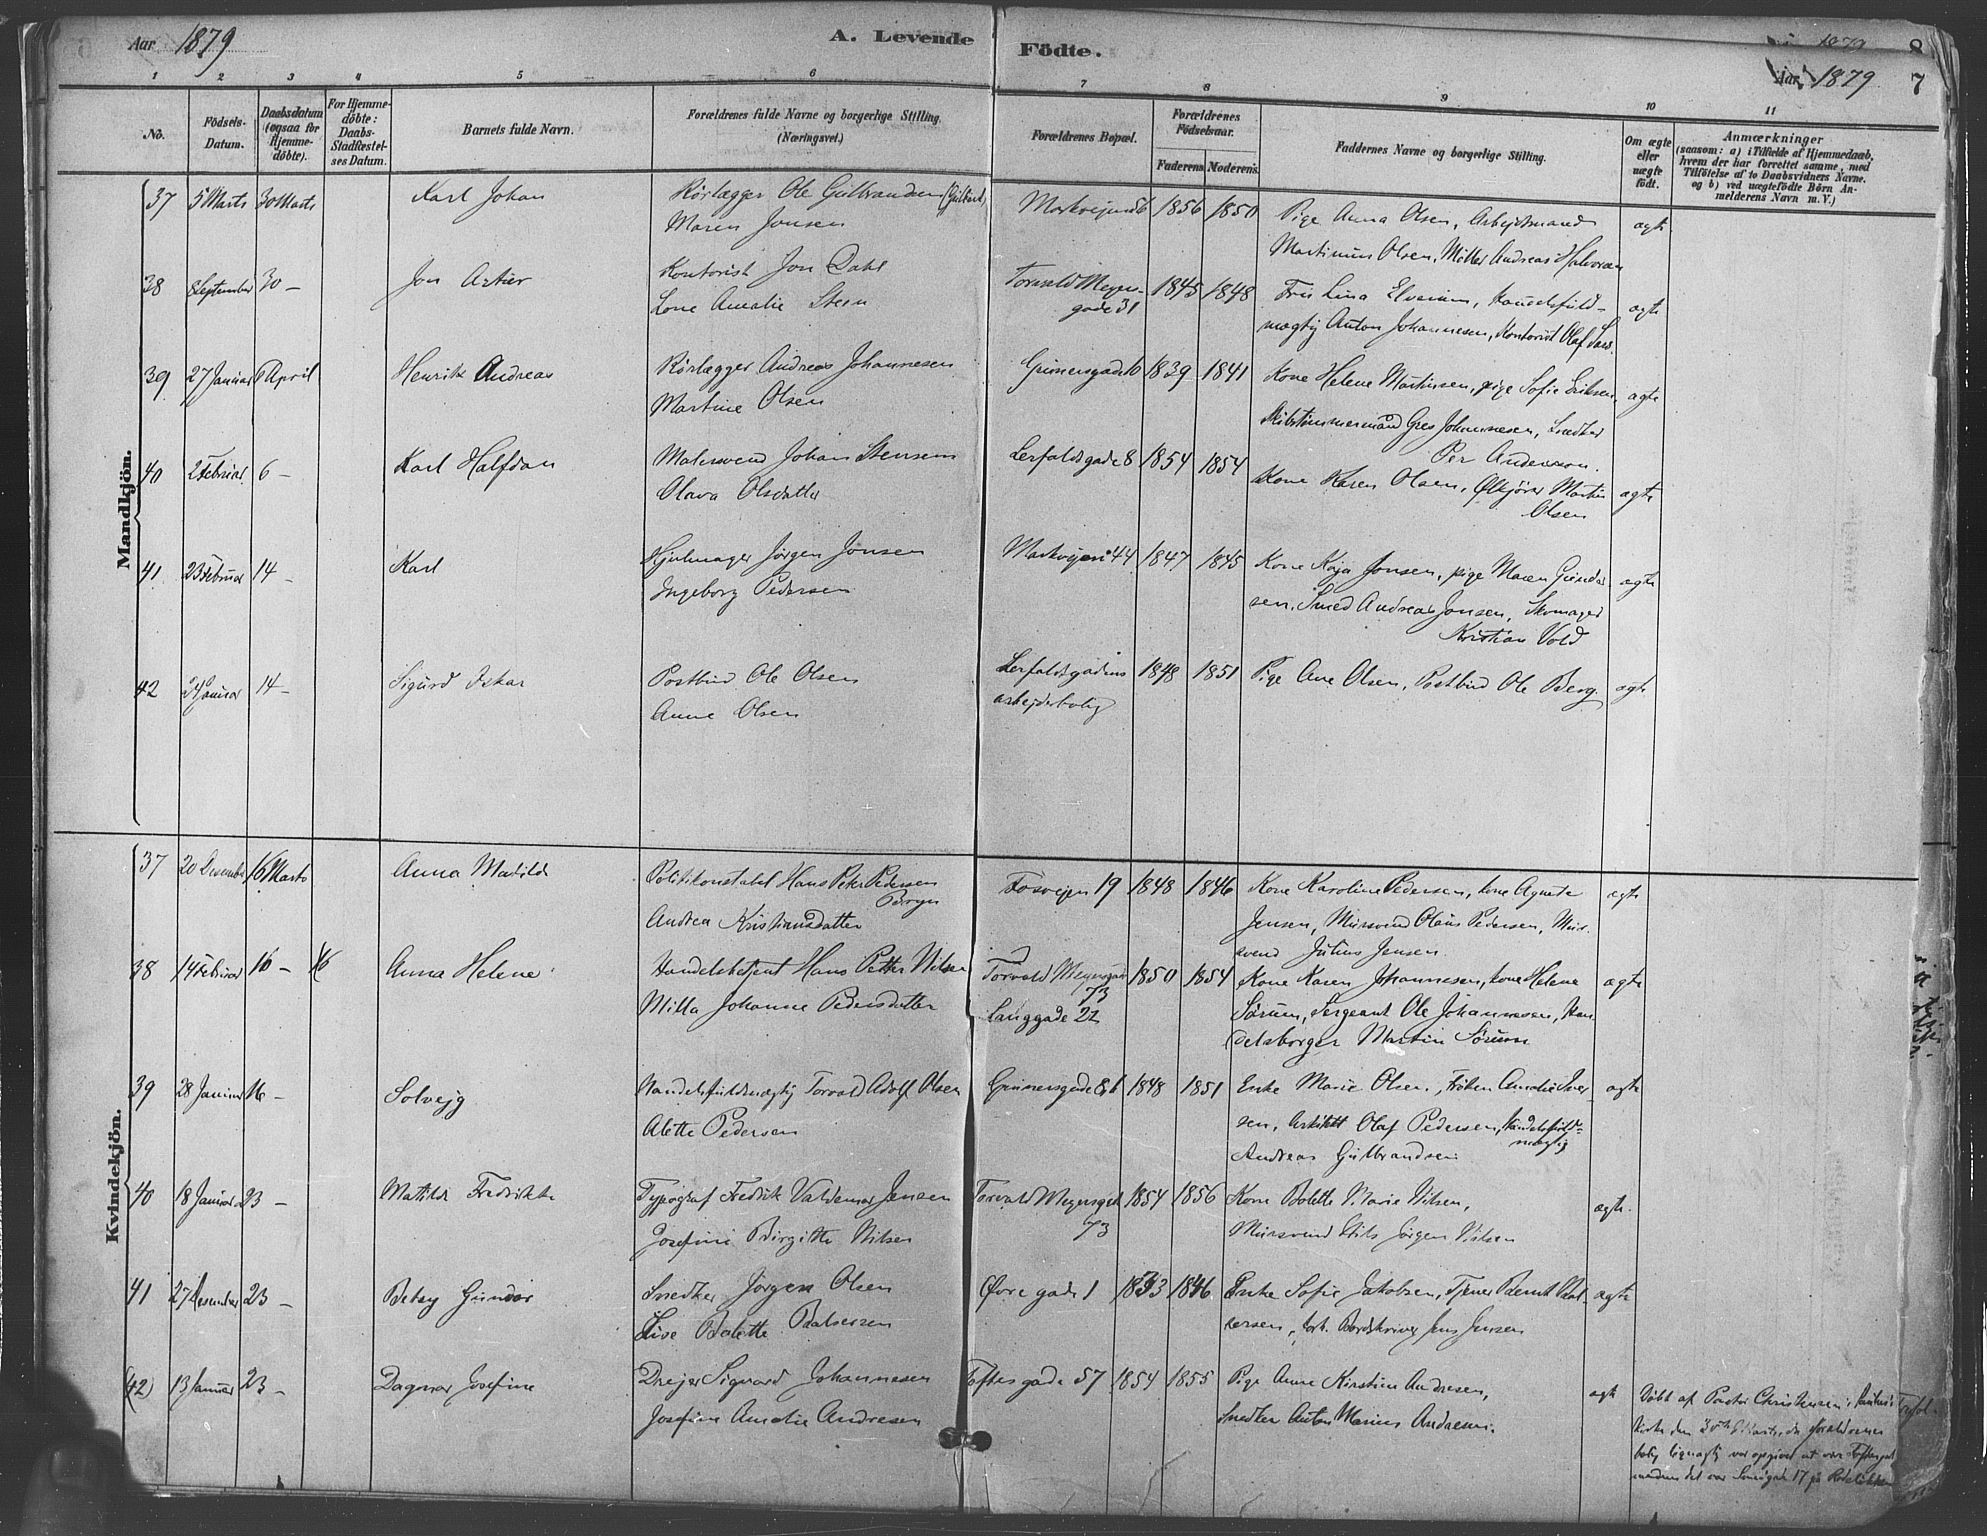 Aar 1879 A. Levende Födte. Aar 1879 7
1 2 3 4 5 6 7 8 9 10 11
No.
Födsels-Datum.
Daabsdatum (ogsaa for Hjemme-döbte).
For Hjemme-döbte: Daabs-Stadfæstel-ses Datum.
Barnets fulde Navn.
Forældrenes fulde Navne og borgerlige Stilling. (Næringsvei.)
Forældrenes Bopæl.
Forældrenes Födselsaar.
Faderens. Moderens.
Faddernes Navne og borgerlige Stilling.
Om ægte eller uægte födt.
Anmærkninger
(saasom: a) i Tilfælde af Hjemmedaab, hvem der har forrettet samme, med Tilföielse af to Daabsvidners Navne. og b) ved uægtefödte Börn An-melderens Navn m. V.)
Mandkjön.
37 5 Marts 30 Marts Karl Johan Rörlægger Ole Gulbrandsen Markvejen 56 1856 1850 Pige Anna Olsen, Arbejdsmand ægte
Maren Jonsen Martinus Olsen, Möller Andreas Halvorsen
38 8 September 30 – Jon Artur Kontorist Jon Dahl Torvald Meyers- 1845 1848 Frk Lina Elverum, Handelsfuld- ægte
Lone Amalie Steen gade 31 mægtig Anton Johannesen, Kontorist Olaf
39 27 Januar April Henrik Andreas Rörlægger Andreas Johannesen Grünersgade 1839 1841 Kone Helene Martinsen, pige Sofie Eriksen, ægte
Martine Olsen Skibstömmermand Johannesen, Snedker
Per Andersen.
40 2 Februar 6 – Karl Halfdan Malersvend Johan Stensen Lerfaldsgade 8 1854 1854 Kone Karen Olsen, Ølkjörer Martin ægte
Olava Olsdatter Olsen
41 23 Februar 14 – Karl Hjulmager Jörgen Jonsen Markvejen 44 1847 1845 Kone Kaja Jonsen, pige Maren Gunder- ægte
Ingeborg Pedersen sen, Smed Andreas Jonsen, Skomager
Kristian Vold
42 24 Januar 14 – Sigurd Oskar Postbud Ole Olsen Lerfaldsgadens 1848 1851 Pige Ane Olsen, Postbud Ole Berg. ægte
Anne Olsen arbejderbolig
Kvindekjön.
37 20 Desember 16 Marts Anna Matilde Politikonstabel Hans Peter Pedersen Fosvejen 19 1848 1846 Kone Karoline Pedersen, kone Agnete ægte
Andrea Kristiansdatter Jensen, Mursvend Olaus Pedersen, Mur-
svend Julius Jensen
38 14 Februar 16 – Anna Helene Handelsbetjent Hans Petter Nilsen Torvald Meyersgade 1850 1854 Kone Karen Johannesen, kone Helene ægte
73
Milla Johanne Pedersdatter Langgade 22 Sörum, Sergeant Ole Johannesen, Han-
delsborger Martin Sörum
39 28 Januar 16 – Solvejg Handelsfuldmægtig Torvald Adolf Olsen Grünersgade 1848 1851 Enke Marie Olsen, Fröken Amalie Iver- ægte
Alette Pedersen sen, Arkitekt Olaf Pedersen, Handelsfuld-mægtig
Andreas Gulbrandsen
40 18 Januar 23 – Matilde Fredrikke Typograf Fredrik Valdemar Jensen Torvald Meyersgade 1854 1856 Kone Bolette Marie Nilsen, ægte.
Josefine Birgitte Nilsen 73 Mursvend Nils Jörgen Nilsen
41 27 Desember 23 – Betsy Gunda Snedker Jörgen Olsen Øvre gade 1 1833 1846 Enke Sofie Jakobsen, Tjener Bernt Bal- ægte
Live Bolette Balsersen sersen, Jens Jensen
(42) 13 Januar 23 – Dagmar Josefine Drejer Sigvard Johannesen Toftes gade 57 1854 1855 Pige Anne Kirstine Andresen, ægte
Josefine Amalie Andresen Snedker Anton Marius Andresen.
Döbt af Pastor Christensen i
Kirke den 30te Marts, da Forældrenes
bolig var opgivet at være Toftesgade
medens det var 17 på Rodelökken